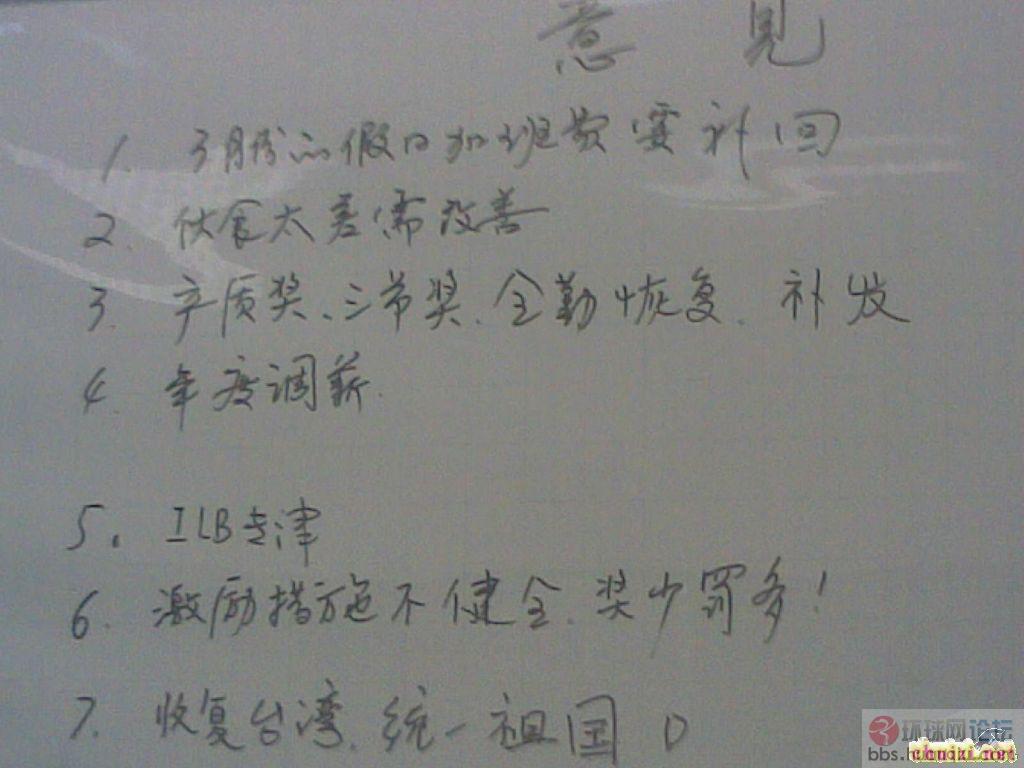 意 见
1. 3月份的假日加班费要补回
2. 伙食太差需改善
3. 产质奖、三节奖.全勤恢复.补发
4. 年度调薪.
5. ILB专津
6. 激励措施不健全.奖少罚多!
7. 收复台湾.统一祖国
环球网论坛
chuizi.net